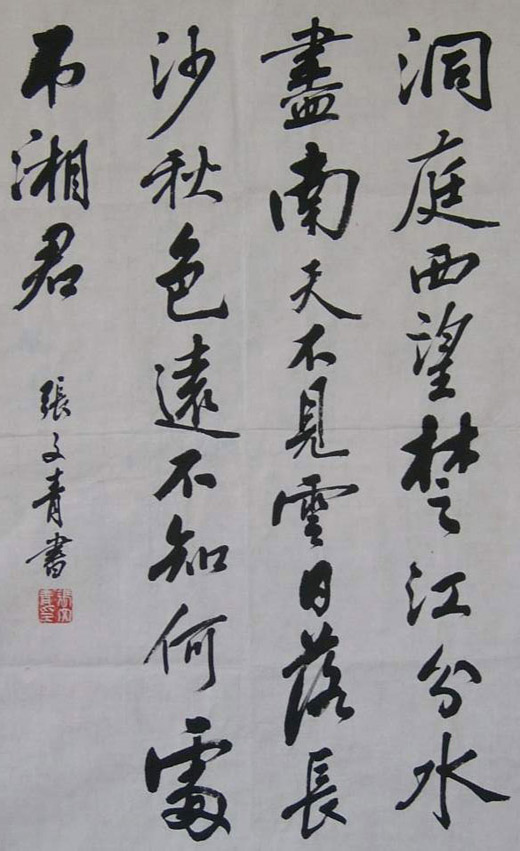 洞庭西望楚江分水
盡南天不見雲日落長
沙秋色遠不知何處
吊湘君
張文青書